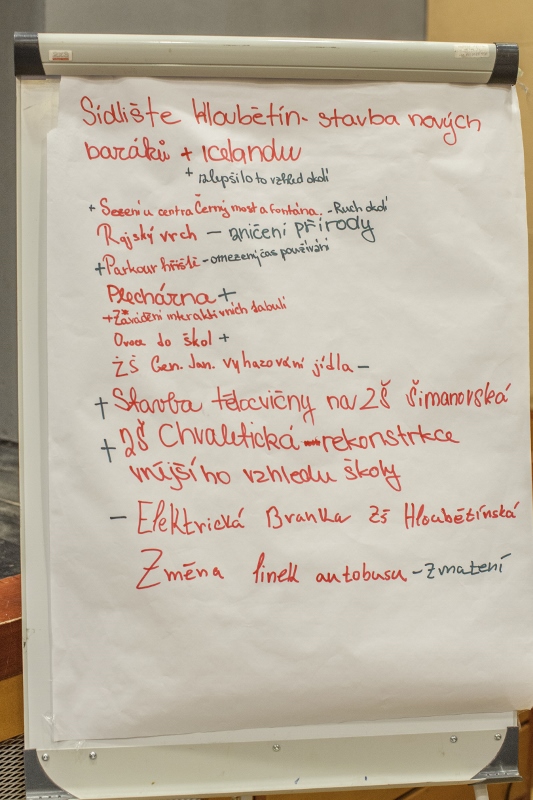 Sídliště Hloubětín - stavba nových
baráků + Icelandu
+ zlepšilo to vzhled okolí
+ Sezení u centra Černý most a fontána. - Ruch okolí
Rajský vrch - zničení přírody
+ Parkour hřiště - omezený čas používání
Plechárna +
+ Zavádění interaktivních tabulí
Ovoce do škol +
ZŠ Gen. Jan. vyhazování jídla -
+ Stavba tělocvičny na ZŠ Šimanovská
+ ZŠ Chvaletická - rekonstrkce
vnějšího vzhledu školy
- Elektrická Branka ZŠ Hloubětínská
Změna linek autobusu - Zmatení